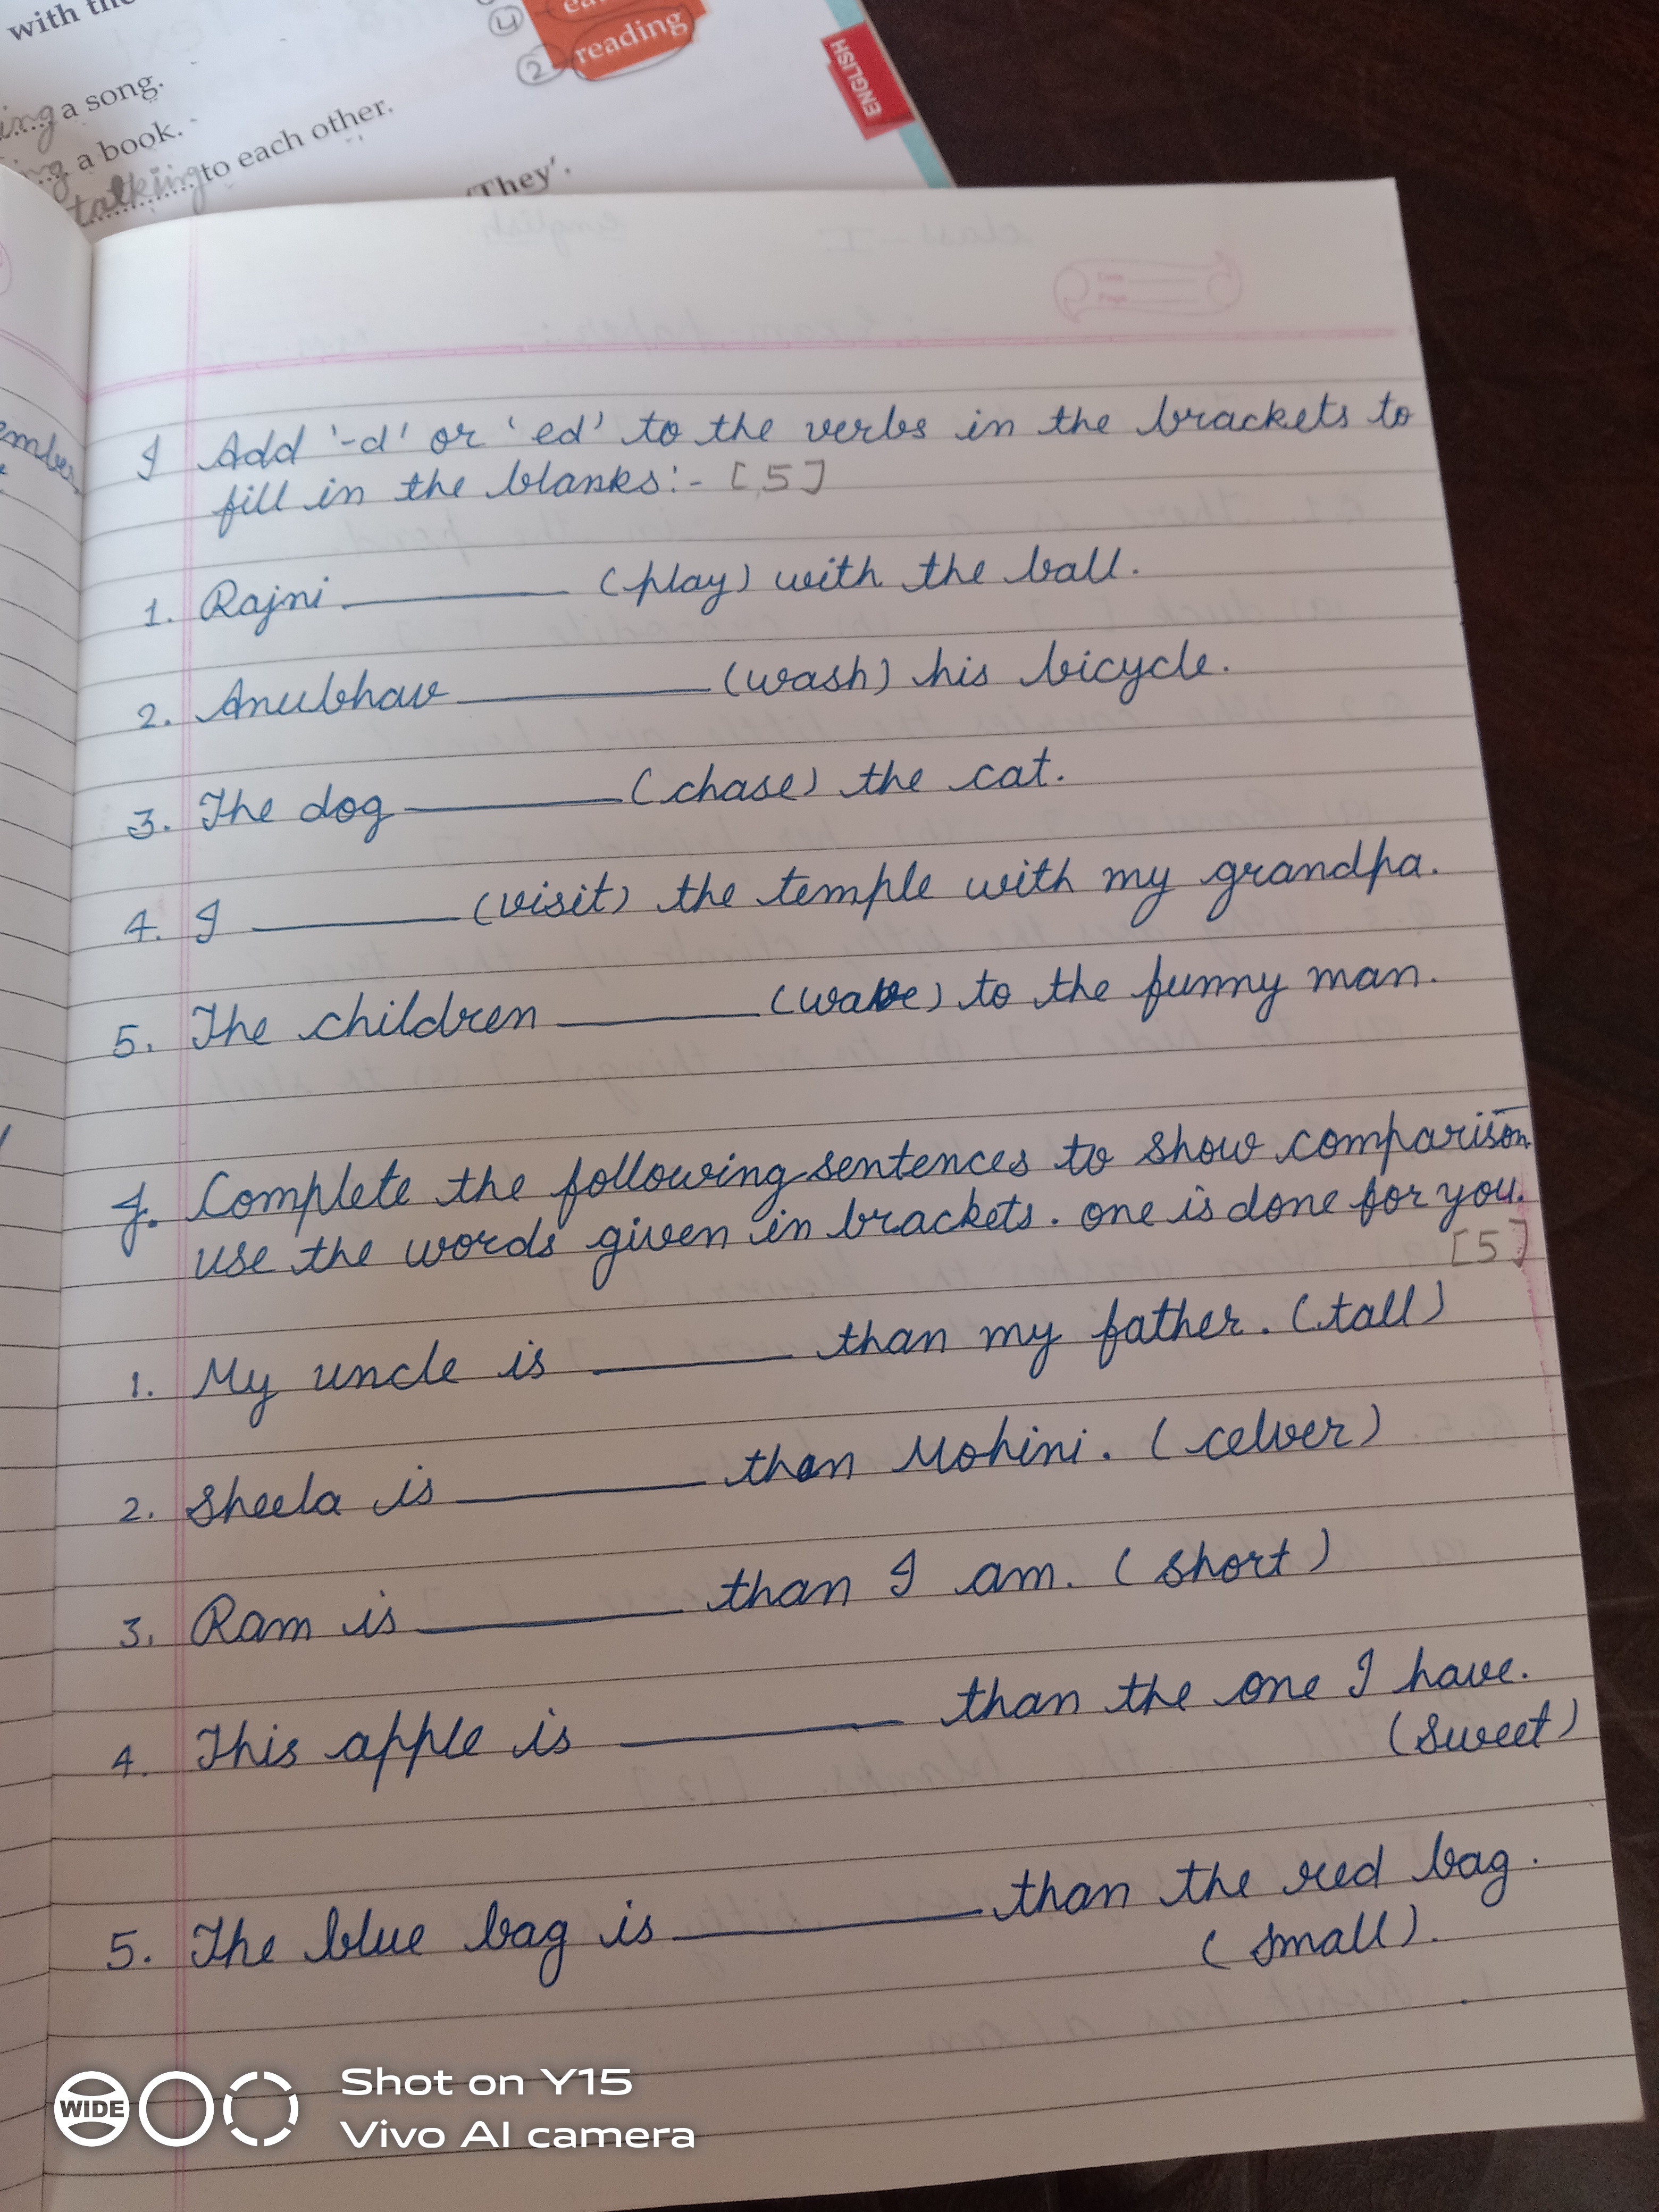 with the
ea
4
2 reading
ENGLISH
ing a song.
ng a book.
talking to each other.
'They'.
I Add '-d' or 'ed' to the verbs in the brackets to
fill in the blanks:- [5]
1. Rajni ________ (play) with the ball.
2. Anubhav ________ (wash) his bicycle.
3. The dog ________ (chase) the cat.
4. I ________ (visit) the temple with my grandpa.
5. The children ________ (wave) to the funny man.
J. Complete the following sentences to show comparison
use the words given in brackets. one is done for you.
[5]
1. My uncle is ________ than my father. (tall)
2. Sheela is ________ than Mohini. (celver)
3. Ram is ________ than I am. (short)
4. This apple is ________ than the one I have.
(sweet)
5. The blue bag is ________ than the red bag.
(small).
WIDE
Shot on Y15
Vivo AI camera